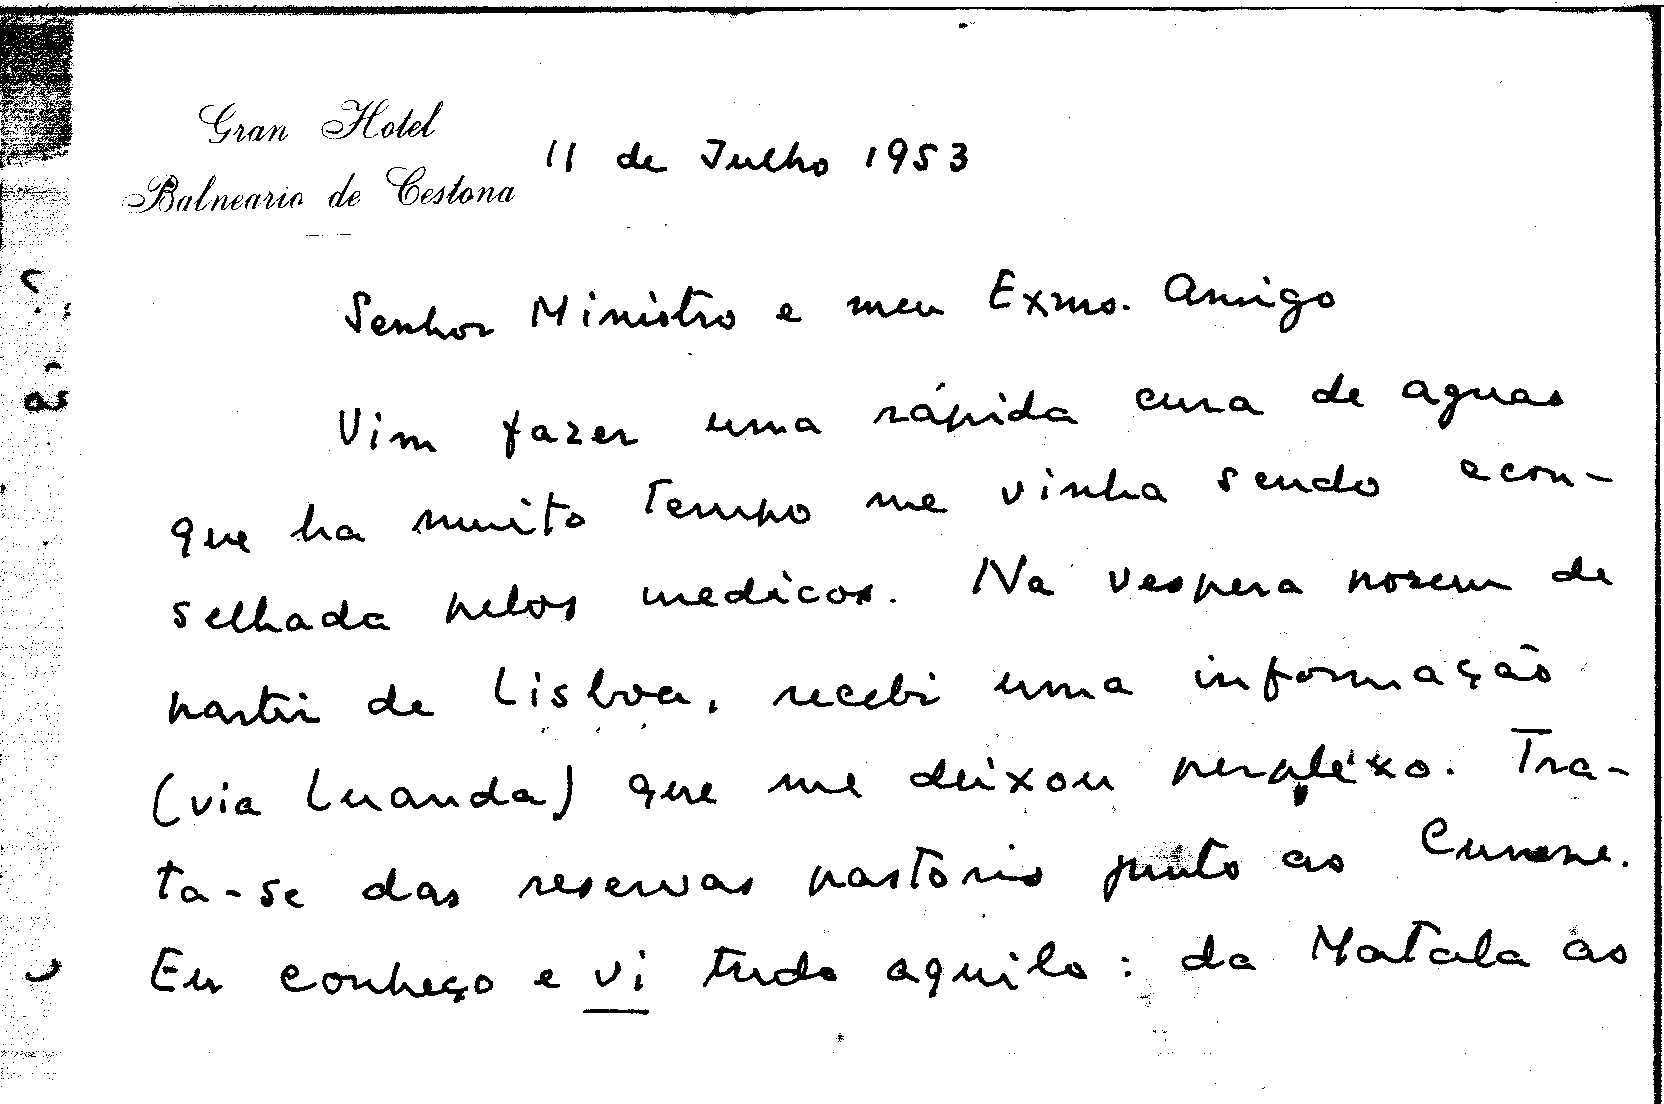 Gran Hotel
Balneario de Cestona
11 de Julho 1953
Senhor Ministro e meu Exmo. Amigo
Vim fazer uma rápida cura de aguas
que ha muito tempo me vinha sendo acon-
selhada pelos medicos. Na vespera porem de
partir de Lisboa, recebi uma informação
(via Luanda) que me deixou perplexo. Tra-
ta-se das reservas pastoris junto ao Cunene.
Eu conheço e vi tudo aquilo: da Matala ao